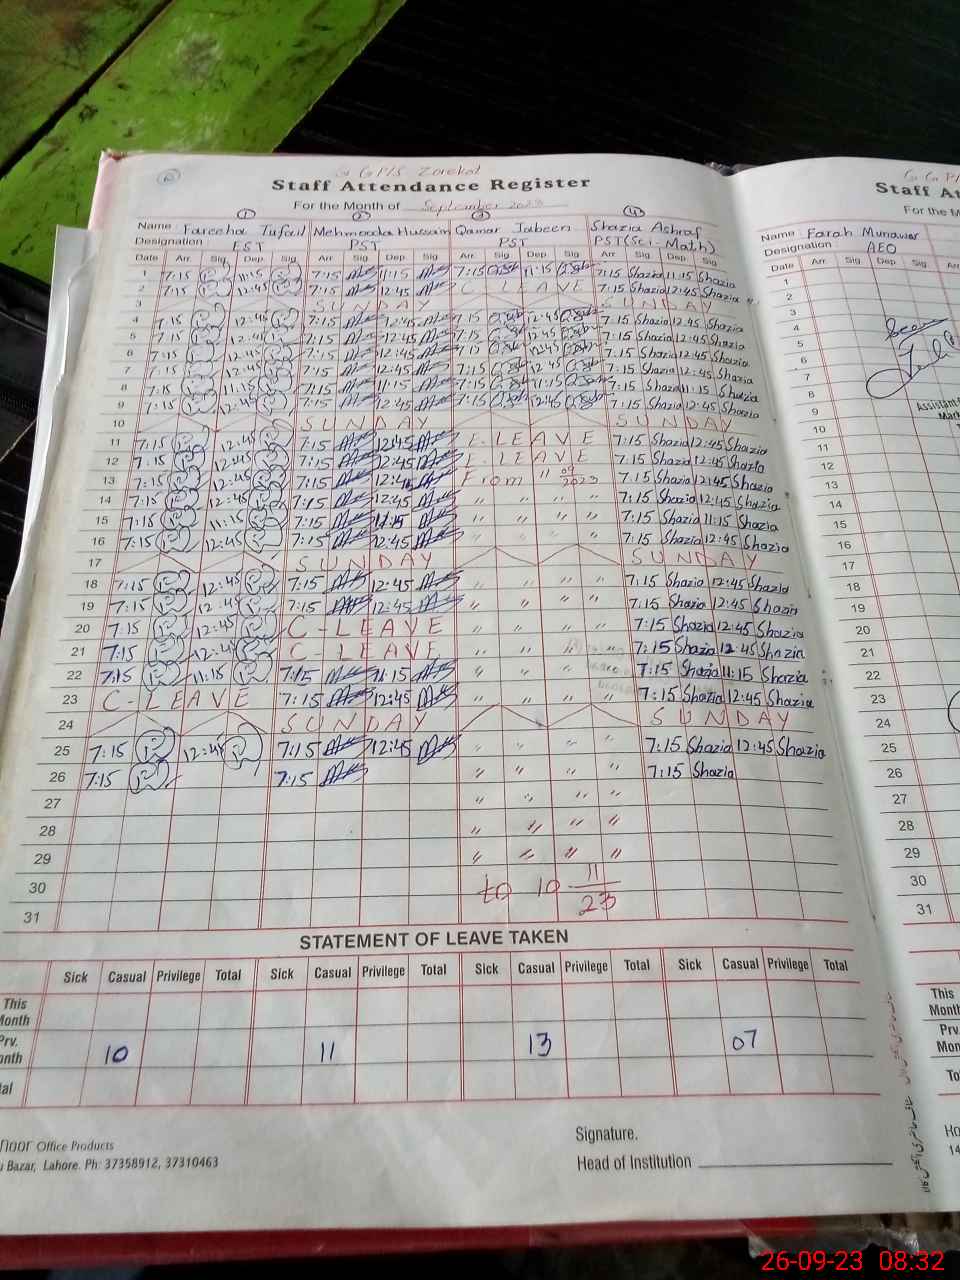 G GPS Zorekot
Staff Attendance Register
For the Month of September 2023
1 2 3 4
Name Fareeha Tufail Mehmooda Hussain Qamar Jabeen Shazia Ashraf
Designation EST PST PST PST(Sci-Math)
Date Arr. Sig. Dep. Sig. Arr. Sig Dep. Sig Arr. Sig Dep. Sig. Arr. Sig. Dep. Sig
1 7:15 11:15 7:15 11:15 7:15 11:15 7:15 Shazia 11:15 Shazia
2 7:15 12:45 7:15 12:45 C LEAVE 7:15 Shazia 12:45 Shazia
3 SUNDAY SUNDAY
4 7:15 12:45 7:15 12:45 7:15 12:45 7:15 Shazia 12:45 Shazia
5 7:15 12:45 7:15 12:45 7:15 12:45 7:15 Shazia 12:45 Shazia
6 7:15 12:45 7:15 12:45 7:15 12:45 7:15 Shazia 12:45 Shazia
7 7:15 12:45 7:15 12:45 7:15 12:45 7:15 Shazia 12:45 Shazia
8 7:15 11:15 7:15 11:15 7:15 11:15 7:15 Shazia 11:15 Shazia
9 7:15 12:45 7:15 12:45 7:15 12:45 7:15 Shazia 12:45 Shazia
10 SUNDAY SUNDAY
11 7:15 12:45 7:15 12:45 E-LEAVE 7:15 Shazia 12:45 Shazia
12 7:15 12:45 7:15 12:45 E-LEAVE 7:15 Shazia 12:45 Shazia
13 7:15 12:45 7:15 12:45 From 11 09 2023 7:15 Shazia 12:45 Shazia
14 7:15 12:45 7:15 12:45 " " " " 7:15 Shazia 12:45 Shazia
15 7:15 11:15 7:15 11:15 " " " " 7:15 Shazia 11:15 Shazia
16 7:15 12:45 7:15 12:45 " " " " 7:15 Shazia 12:45 Shazia
17 SUNDAY SUNDAY
18 7:15 12:45 7:15 12:45 " " " " 7:15 Shazia 12:45 Shazia
19 7:15 12:45 7:15 12:45 " " " " 7:15 Shazia 12:45 Shazia
20 7:15 12:45 C-LEAVE " " " " 7:15 Shazia 12:45 Shazia
21 7:15 12:45 C-LEAVE " " " " 7:15 Shazia 12:45 Shazia
22 7:15 11:15 7:15 11:15 " " " " 7:15 Shazia 11:15 Shazia
23 C-LEAVE 7:15 12:45 " " " " 7:15 Shazia 12:45 Shazia
24 SUNDAY SUNDAY
25 7:15 12:45 7:15 12:45 " " " " 7:15 Shazia 12:45 Shazia
26 7:15 7:15 " " " " 7:15 Shazia
27 " " " "
28 " " " "
29 " " " "
30 to 10 11 23
31
STATEMENT OF LEAVE TAKEN
Sick Casual Privilege Total Sick Casual Privilege Total Sick Casual Privilege Total Sick Casual Privilege Total
This Month
Prv. onth 10 11 13 07
tal
noor Office Products
Bazar, Lahore. Ph: 37358912, 37310463
Signature.
Head of Institution
G GP
Staff At
For the M
Name: Farah Munawar
Designation AEO
Date Arr. Sig Dep. Sig Arr.
1
2
3
4
5
6
7
8
9
10
11
12
13
14
15
16
17
18
19
20
21
22
23
24
25
26
27
28
29
30
31
Assistant
This Month
Prv. Mon
To
Ho
14
26-09-23 08:32